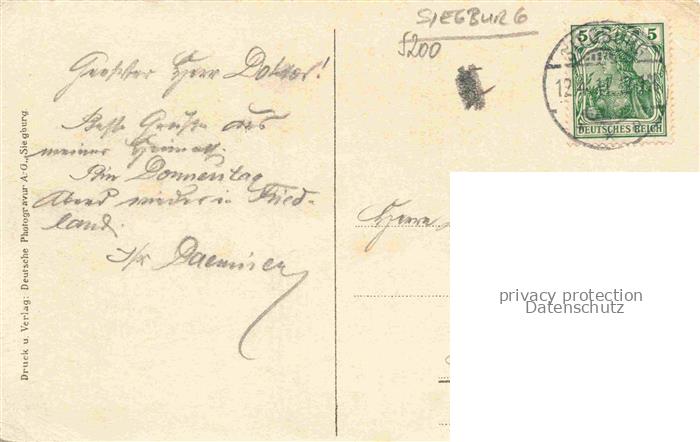 SIEGBURG
5200
5 5
DEUTSCHES REICH
SIEGBURG
12.4.11
Geehrter Herr Doktor!
Beste Grüße aus
meiner Heimat.
Bin Donnerstag
Abend wieder in Fried-
land.
Ihr
Herrn
Druck u. Verlag: Deutsche Photogravur A.-G., Siegburg
privacy protection
Datenschutz